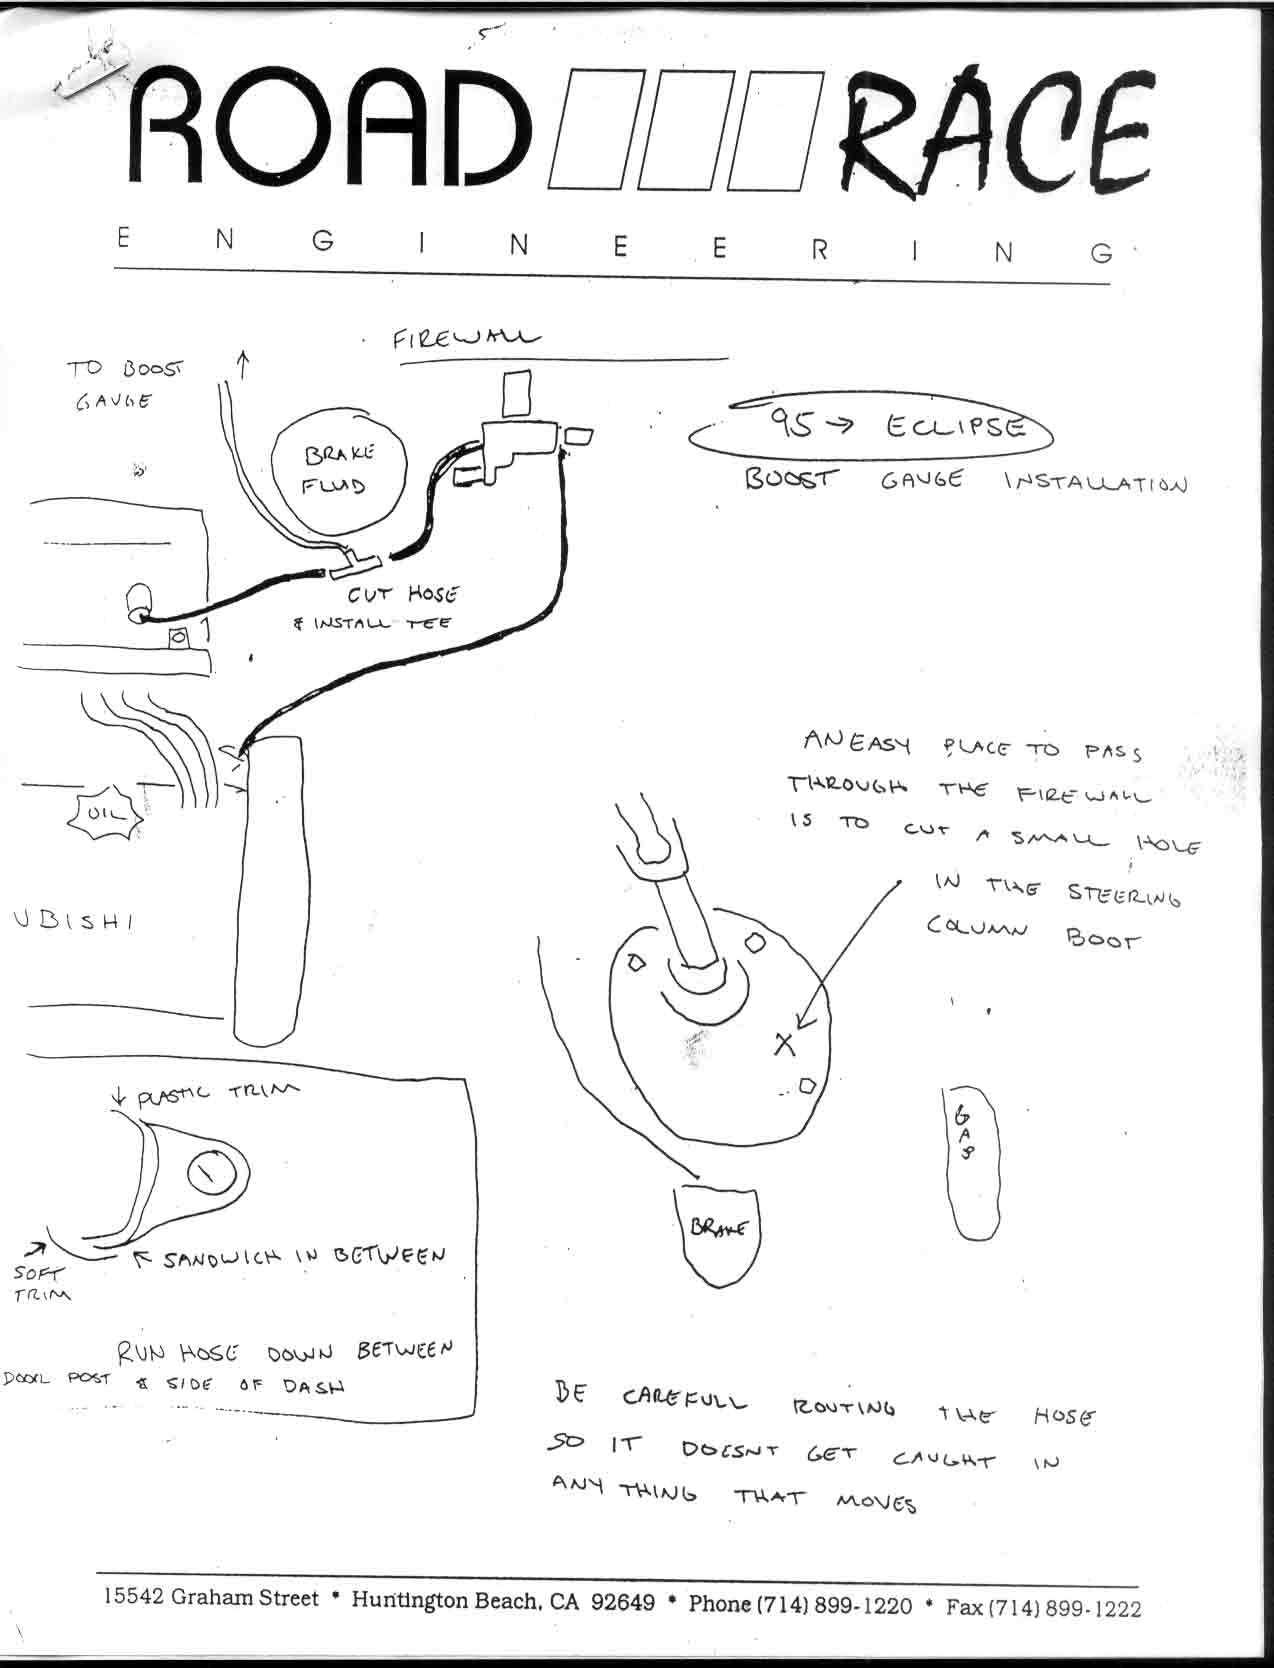 ROAD RACE
ENGINEERING
FIREWALL
TO BOOST
GAUGE
BRAKE
FLUID
95 → ECLIPSE
BOOST GAUGE INSTALLATION
CUT HOSE
& INSTALL TEE
OIL
UBISHI
AN EASY PLACE TO PASS
THROUGH THE FIREWALL
IS TO CUT A SMALL HOLE
IN THE STEERING
COLUMN BOOT
X
GAS
BRAKE
PLASTIC TRIM
SANDWICH IN BETWEEN
SOFT
TRIM
RUN HOSE DOWN BETWEEN
DOOR POST & SIDE OF DASH
BE CAREFULL ROUTING THE HOSE
SO IT DOESNT GET CAUGHT IN
ANY THING THAT MOVES
15542 Graham Street * Huntington Beach, CA 92649 * Phone (714) 899-1220 * Fax (714) 899-1222